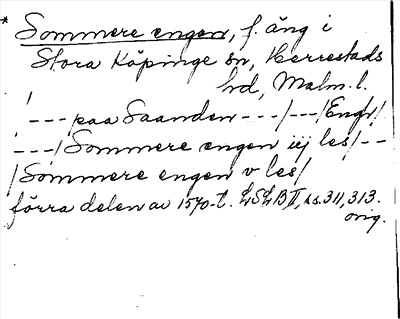 * Sommere engen, f. äng i
Stora Köpinge sn, Herrestads
hd, Malm. l.
/--- paa Saanden ---/---/Engh/
---/Sommere engen iij les/--
/Sommere engen v les/
förra delen av 1570-t. LSLB II, ss. 311, 313.
orig.